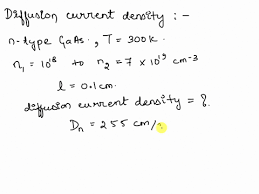 Diffusion current density :-
n-type GaAs, T = 300k.
n₁ = 10¹⁸ to n₂ = 7 × 10¹⁹ cm⁻³
l = 0.1cm.
diffusion current density = ?
Dₙ = 255 cm/